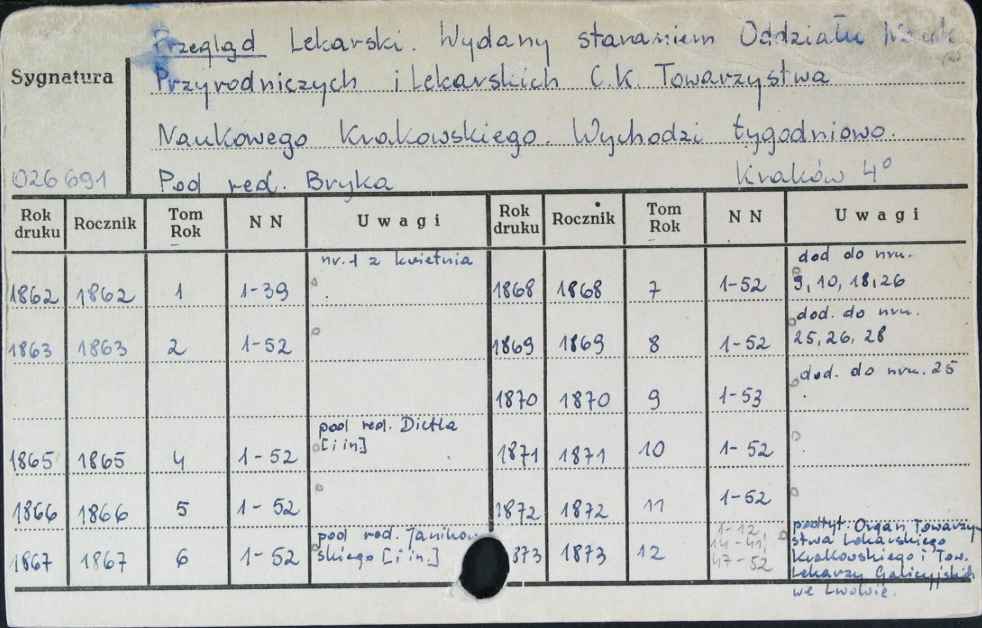 Przegląd Lekarski. Wydany staraniem Oddziału Nauk
Sygnatura
Przyrodniczych i Lekarskich C.K. Towarzystwa
Naukowego Krakowskiego. Wychodzi tygodniowo.
026691
Pod red. Bryka Kraków 4°
Rok druku Rocznik Tom Rok NN Uwagi Rok druku Rocznik Tom Rok NN Uwagi
1862 1862 1 1-39 nr. 1 z kwietnia
1863 1863 2 1-52
1865 1865 4 1-52 pod red. Dietla [i in]
1866 1866 5 1-52
1867 1867 6 1-52 pod red. Janikowskiego [i in.]
1868 1868 7 1-52 dod do nru. 9, 10, 18, 26
1869 1869 8 1-52 dod. do nru. 25, 26, 28
1870 1870 9 1-53 dod. do nru. 25
1871 1871 10 1-52
1872 1872 11 1-52
873 1873 12 1-12
14-41
47-52
podtyt: Organ Towarzy
stwa Lekarskiego
Krakowskiego i Tow.
Lekarzy Galicyjskich
we Lwowie.